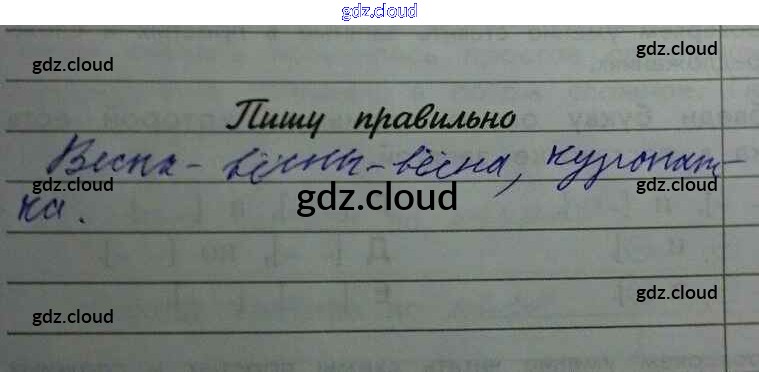 gdz.cloud
gdz.cloud gdz.cloud
Пишу правильно
Весна - вёсны - весна, куропат-
ка.
gdz.cloud gdz.cloud gdz.cloud
gdz.cloud gdz.cloud